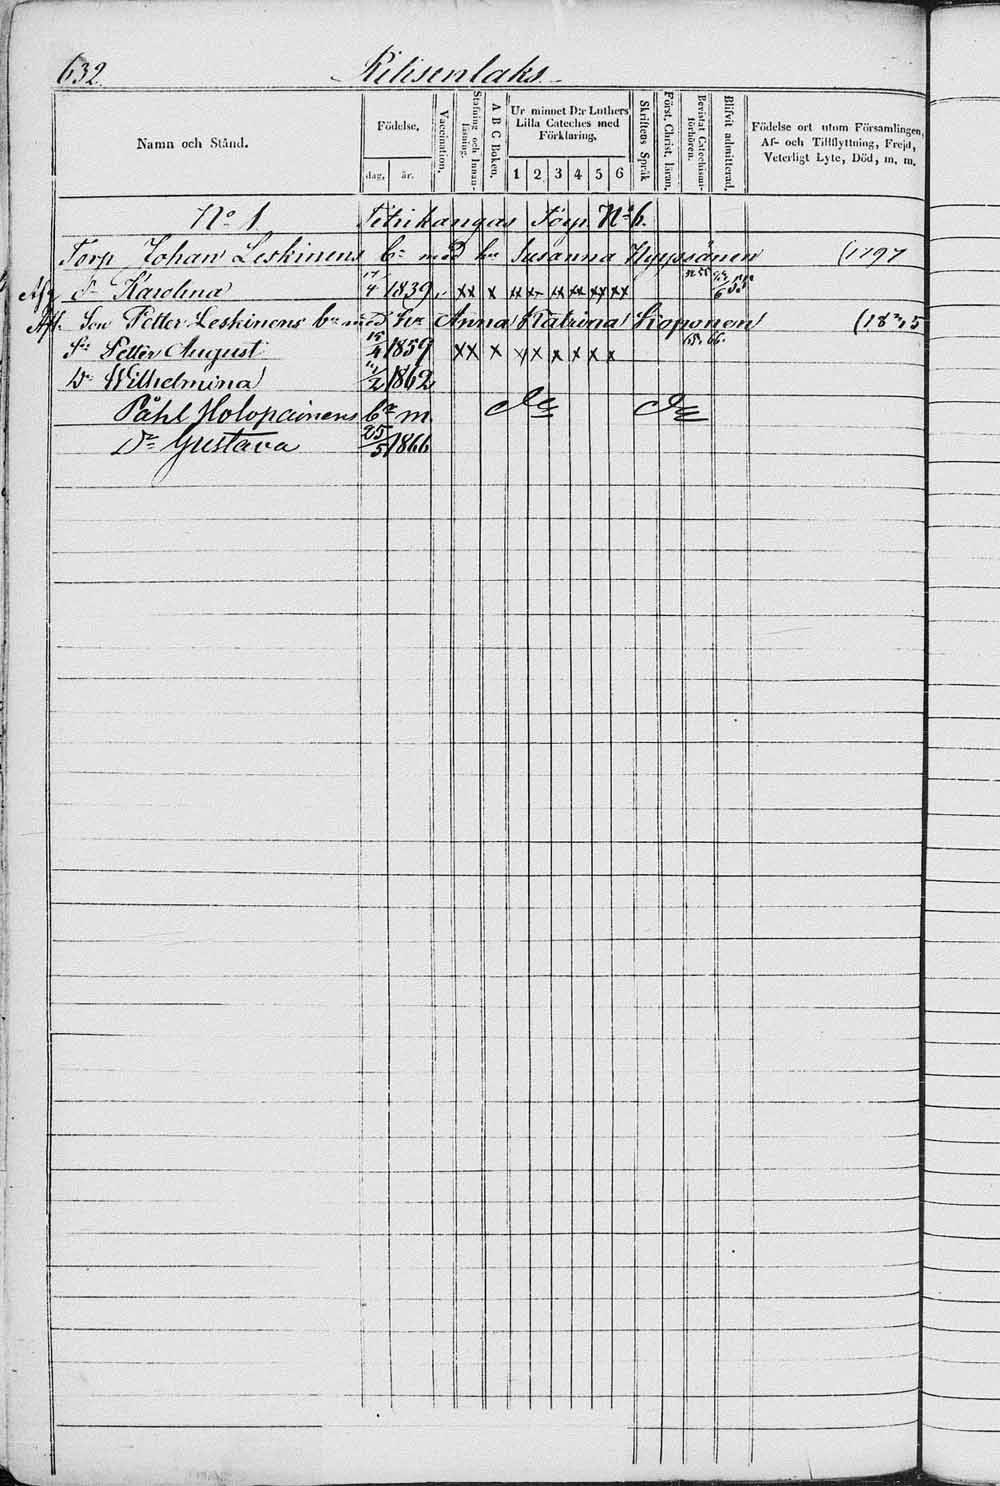 632. Ritisenlaks.
Namn och Stånd. Födelse, dag, år. Vaccination. Stafning och Innanläsning. A B C Boken. Ur minnet D:r Luthers Lilla Cateches med Förklaring. 1 2 3 4 5 6 Skriftens Språk Först. Christ. läran. Bevistat Catechismiförhören. Blifvit admitterad. Födelse ort utom Församlingen, Af- och Tillflyttning, Frejd, Veterligt Lyte, Död, m. m.
No 1 Titrikangas Torp No 6.
Torp Johan Leskinens bn med hu Susanna Hyyssönen (1797
D Karolina 4 1839 xx x xx xx xx xx xx 6 55
Aff. Son Petter Leskinens bn med hu Anna Katrina Koponen (1835
Sn Petter August 15/4 1859 xx x x x x x x x 65. 66.
Dr Wilhelmina 2 1862
Påhl Holopainens bn m.
Dr Gustava 25/5 1866